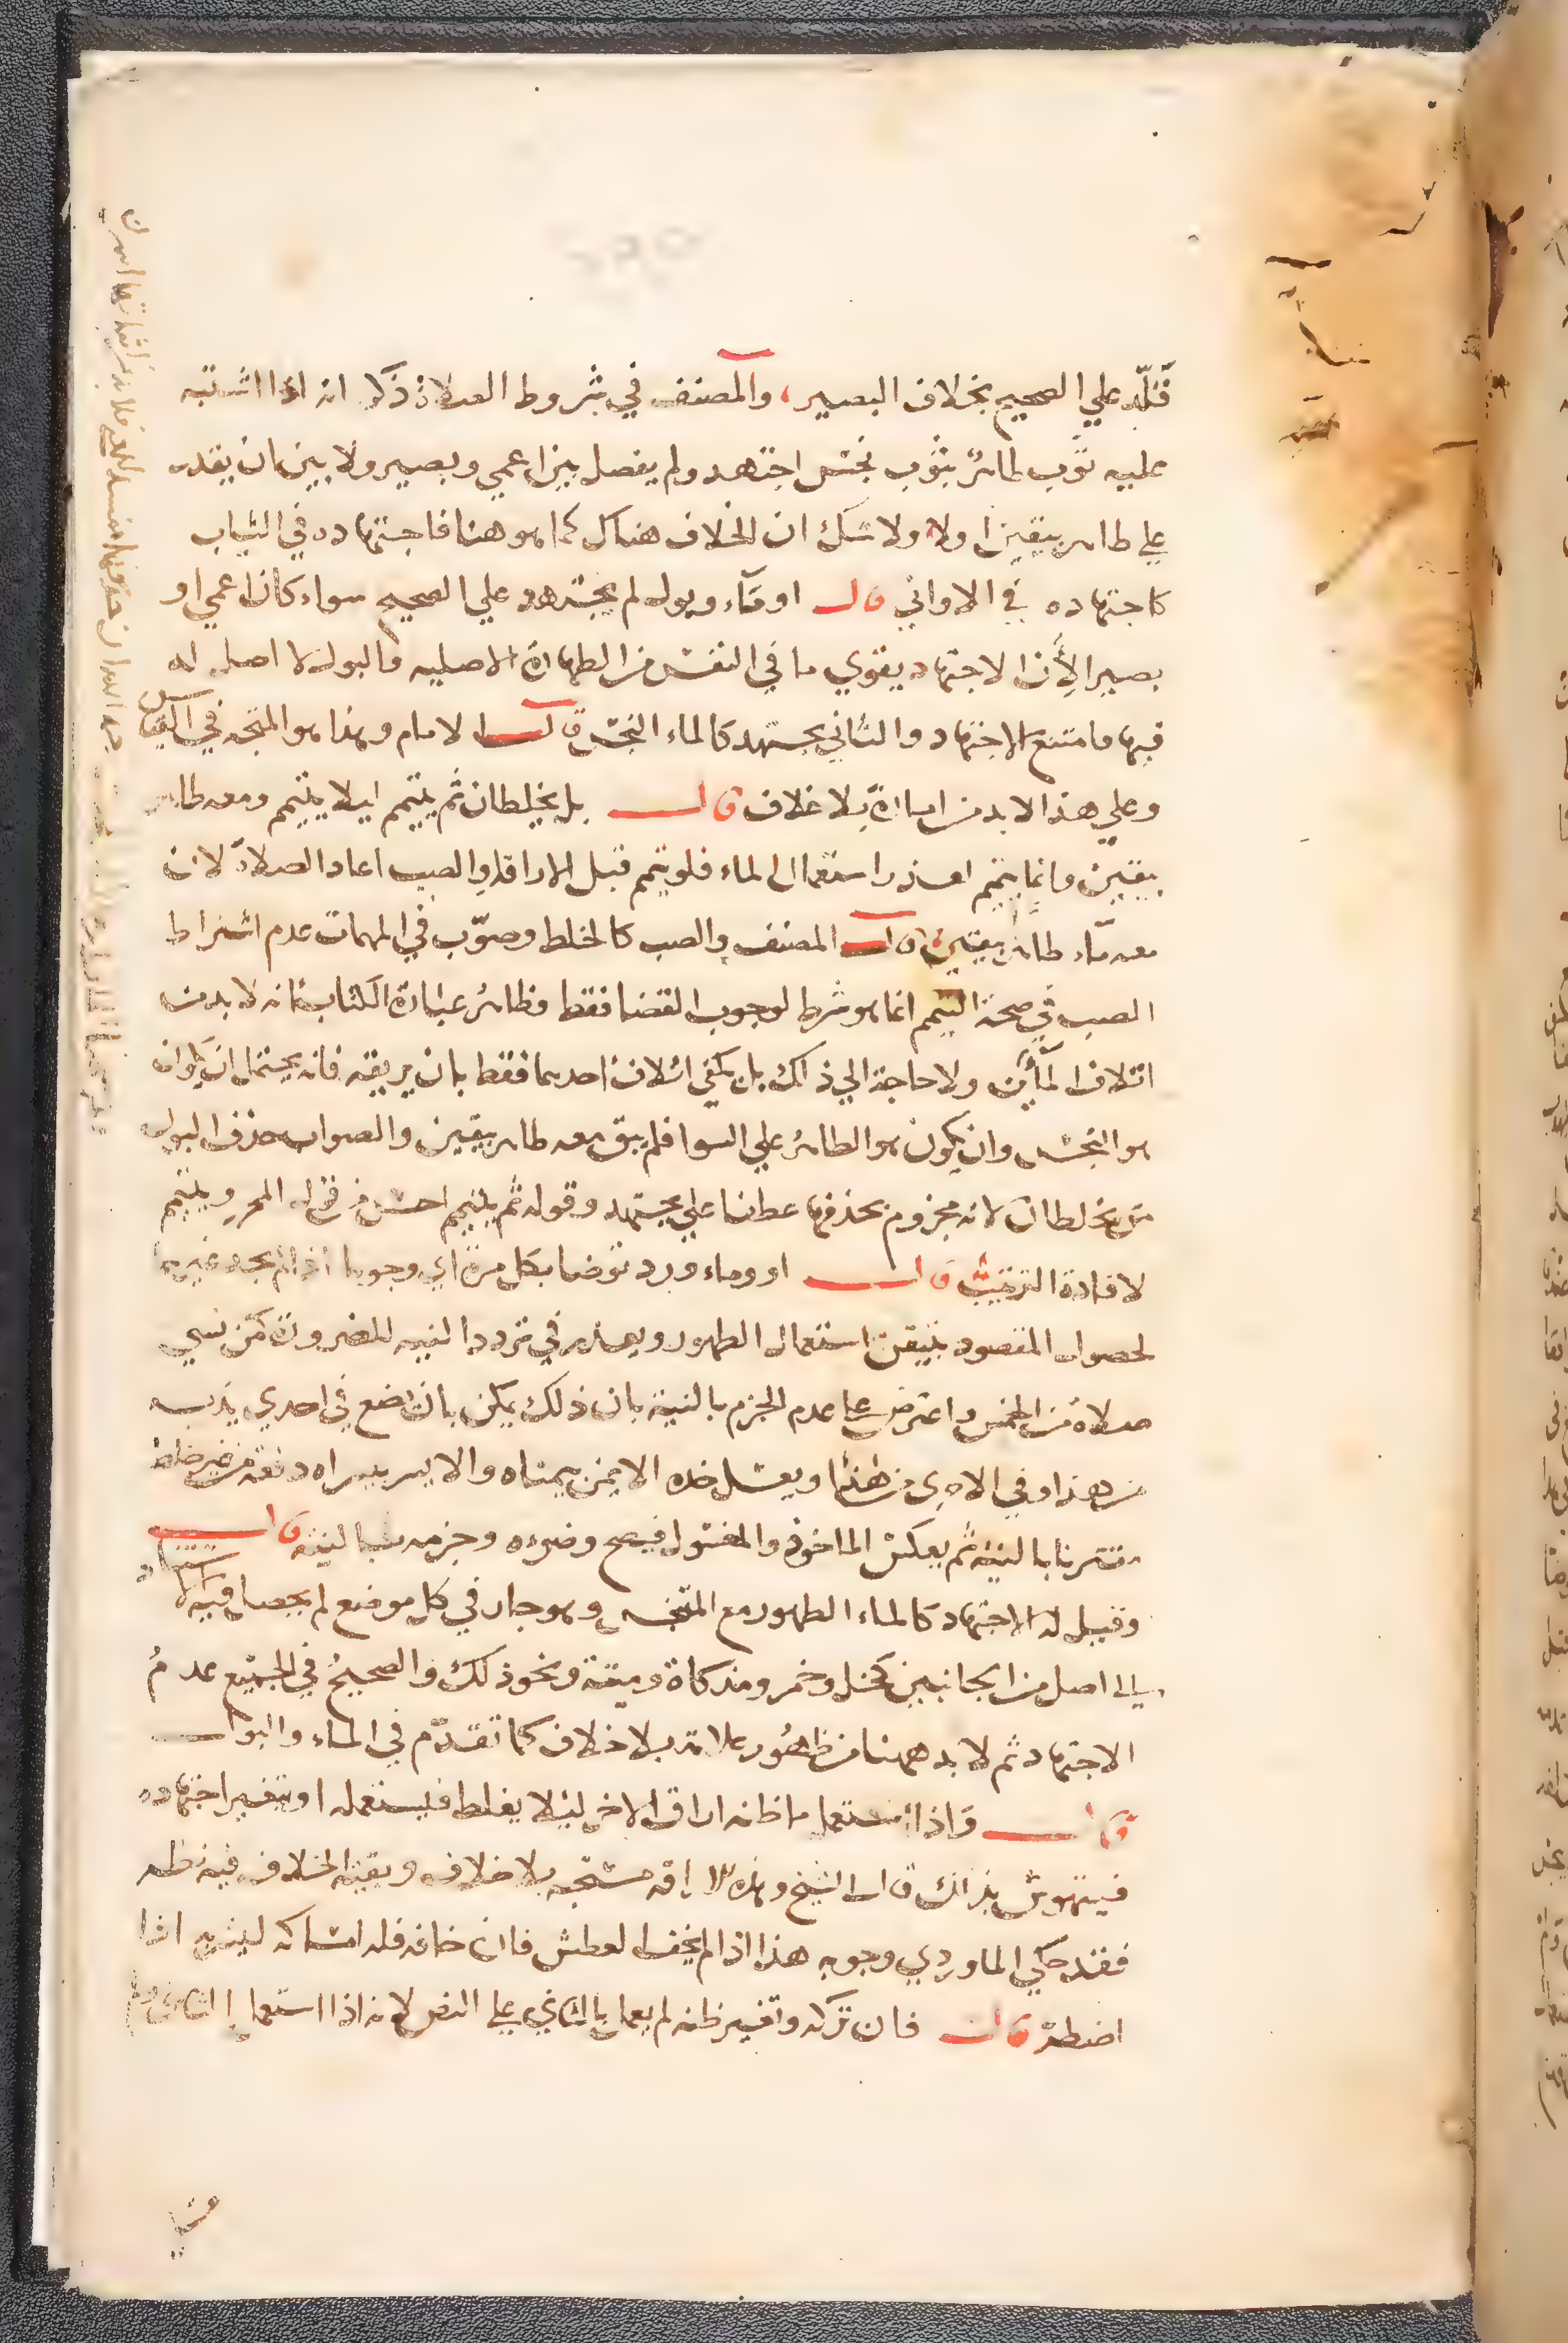 قلّد علي الصحيح بخلاف البصير، والمصنف في شروط الصلاة ذكر انه اذا اشتبه
عليه ثوب طاهر بثوب نجس اجتهد ولم يفصل بين اعمي وبصير ولا بين ان يقدر
علي طاهر بيقين اولا ولا شك ان الخلاف هناك كما هو هنا فاجتهاده في الثياب
كاجتهاده في الاواني قال او مآء وبول لم يجتهد علي الصحيح سواء كان اعمي او
بصيرا لأن الاجتهاد يقوي ما في النفس من الطهارة الاصليه والبول لا اصل له
فيها فامتنع الاجتهاد والثاني يجتهد كالماء النجس قال الامام وهذا هو المتجه في القياس
وعلي هذا لا بد من امارة بلا خلاف قال بل يخلطان ثم يتيمم ليلا يتيمم ومعه طاهر
بيقين وانما يتيمم لعذر استعمال الماء فلو تيمم قبل الاراقه او الصب اعاد الصلاة لان
معه مآء طاهر بيقين قال المصنف والصب كالخلط وصوّب في المهمات عدم اشتراط
الصب في صحة التيمم انما هو شرط لوجوب القضا فقط وظاهر عبارة الكتاب انه لا بد من
اتلاف المآئين ولا حاجة الي ذلك بل يكفي اتلاف احدهما فقط بان يريقه فانه يحتمل ان يكون
هو النجس وان يكون هو الطاهر علي السوا فلم يبق معه طاهر بيقين والصواب حذف النون
من يخلطان لانه مجزوم بحذفها عطفا علي يجتهد وقوله ثم يتيمم احسن من قول المحرر ويتيمم
لافادة الترتيب قال او وماء ورد توضا بكل مرة اي وجوبا اذا لم يجد غيرهما
لحصول المقصود بتيقن استعمال الطهور ويعذر في تردد النيه للضرورة كمن نسي
صلاة من الخمس واعترض علي عدم الجزم بالنية بان ذلك يمكن بان يضع في احدي يديه
من هذا وفي الاخرى من هذا ويغسل خده الايمن بيمناه والايسر بيسراه دفعة من غير خلط
مقترنا بالنيه ثم يعكس الماخوذ والمغسول فيصح وضوءه وجزمه بالنية قال
وقيل له الاجتهاد كالماء الطهور مع المتنجس وهو جار في كل موضع لم يحصل فيه الاستناد
الي اصل من الجانبين كخل وخمر ومذكاة وميتة ونحو ذلك والصحيح في الجميع عدم
الاجتهاد ثم لا بد ههنا من ظهور علامة بلا خلاف كما تقدّم في الماء والبول
قال واذا استعمل ما ظنه اراق الاخر ليلا يغلط فيستعمله او يتغير اجتهاده
فيتهوش بذلك قال الشيخ وهذه الاراقة مستحبه بلا خلاف وبقية الخلاف فيه نظر
فقد حكي الماوردي وجوبه هذا اذا لم يخف العطش فان خافه فله امساكه ليشربه اذا
اضطر قال فان تركه وتغير ظنه لم يعمل بالثاني علي النص لانه اذا استعمل الثاني